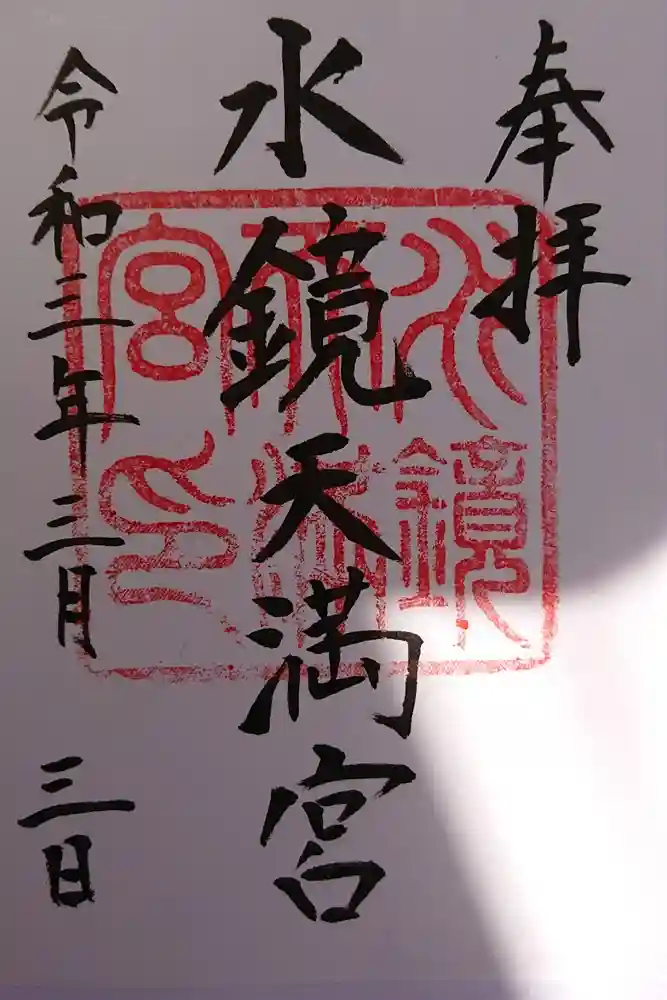 奉拝
水鏡天満宮
令和三年三月三日
水鏡天満宮印